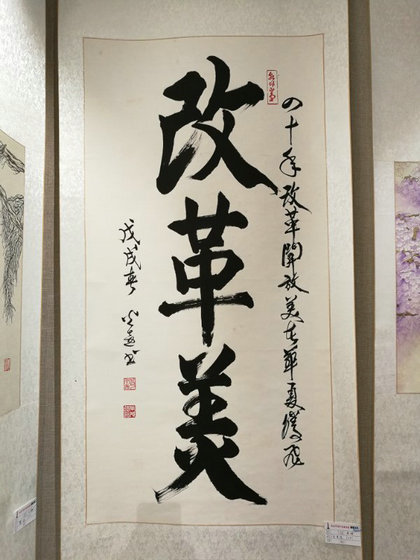 四十年改革開放美在華夏
改革美
戊戌春